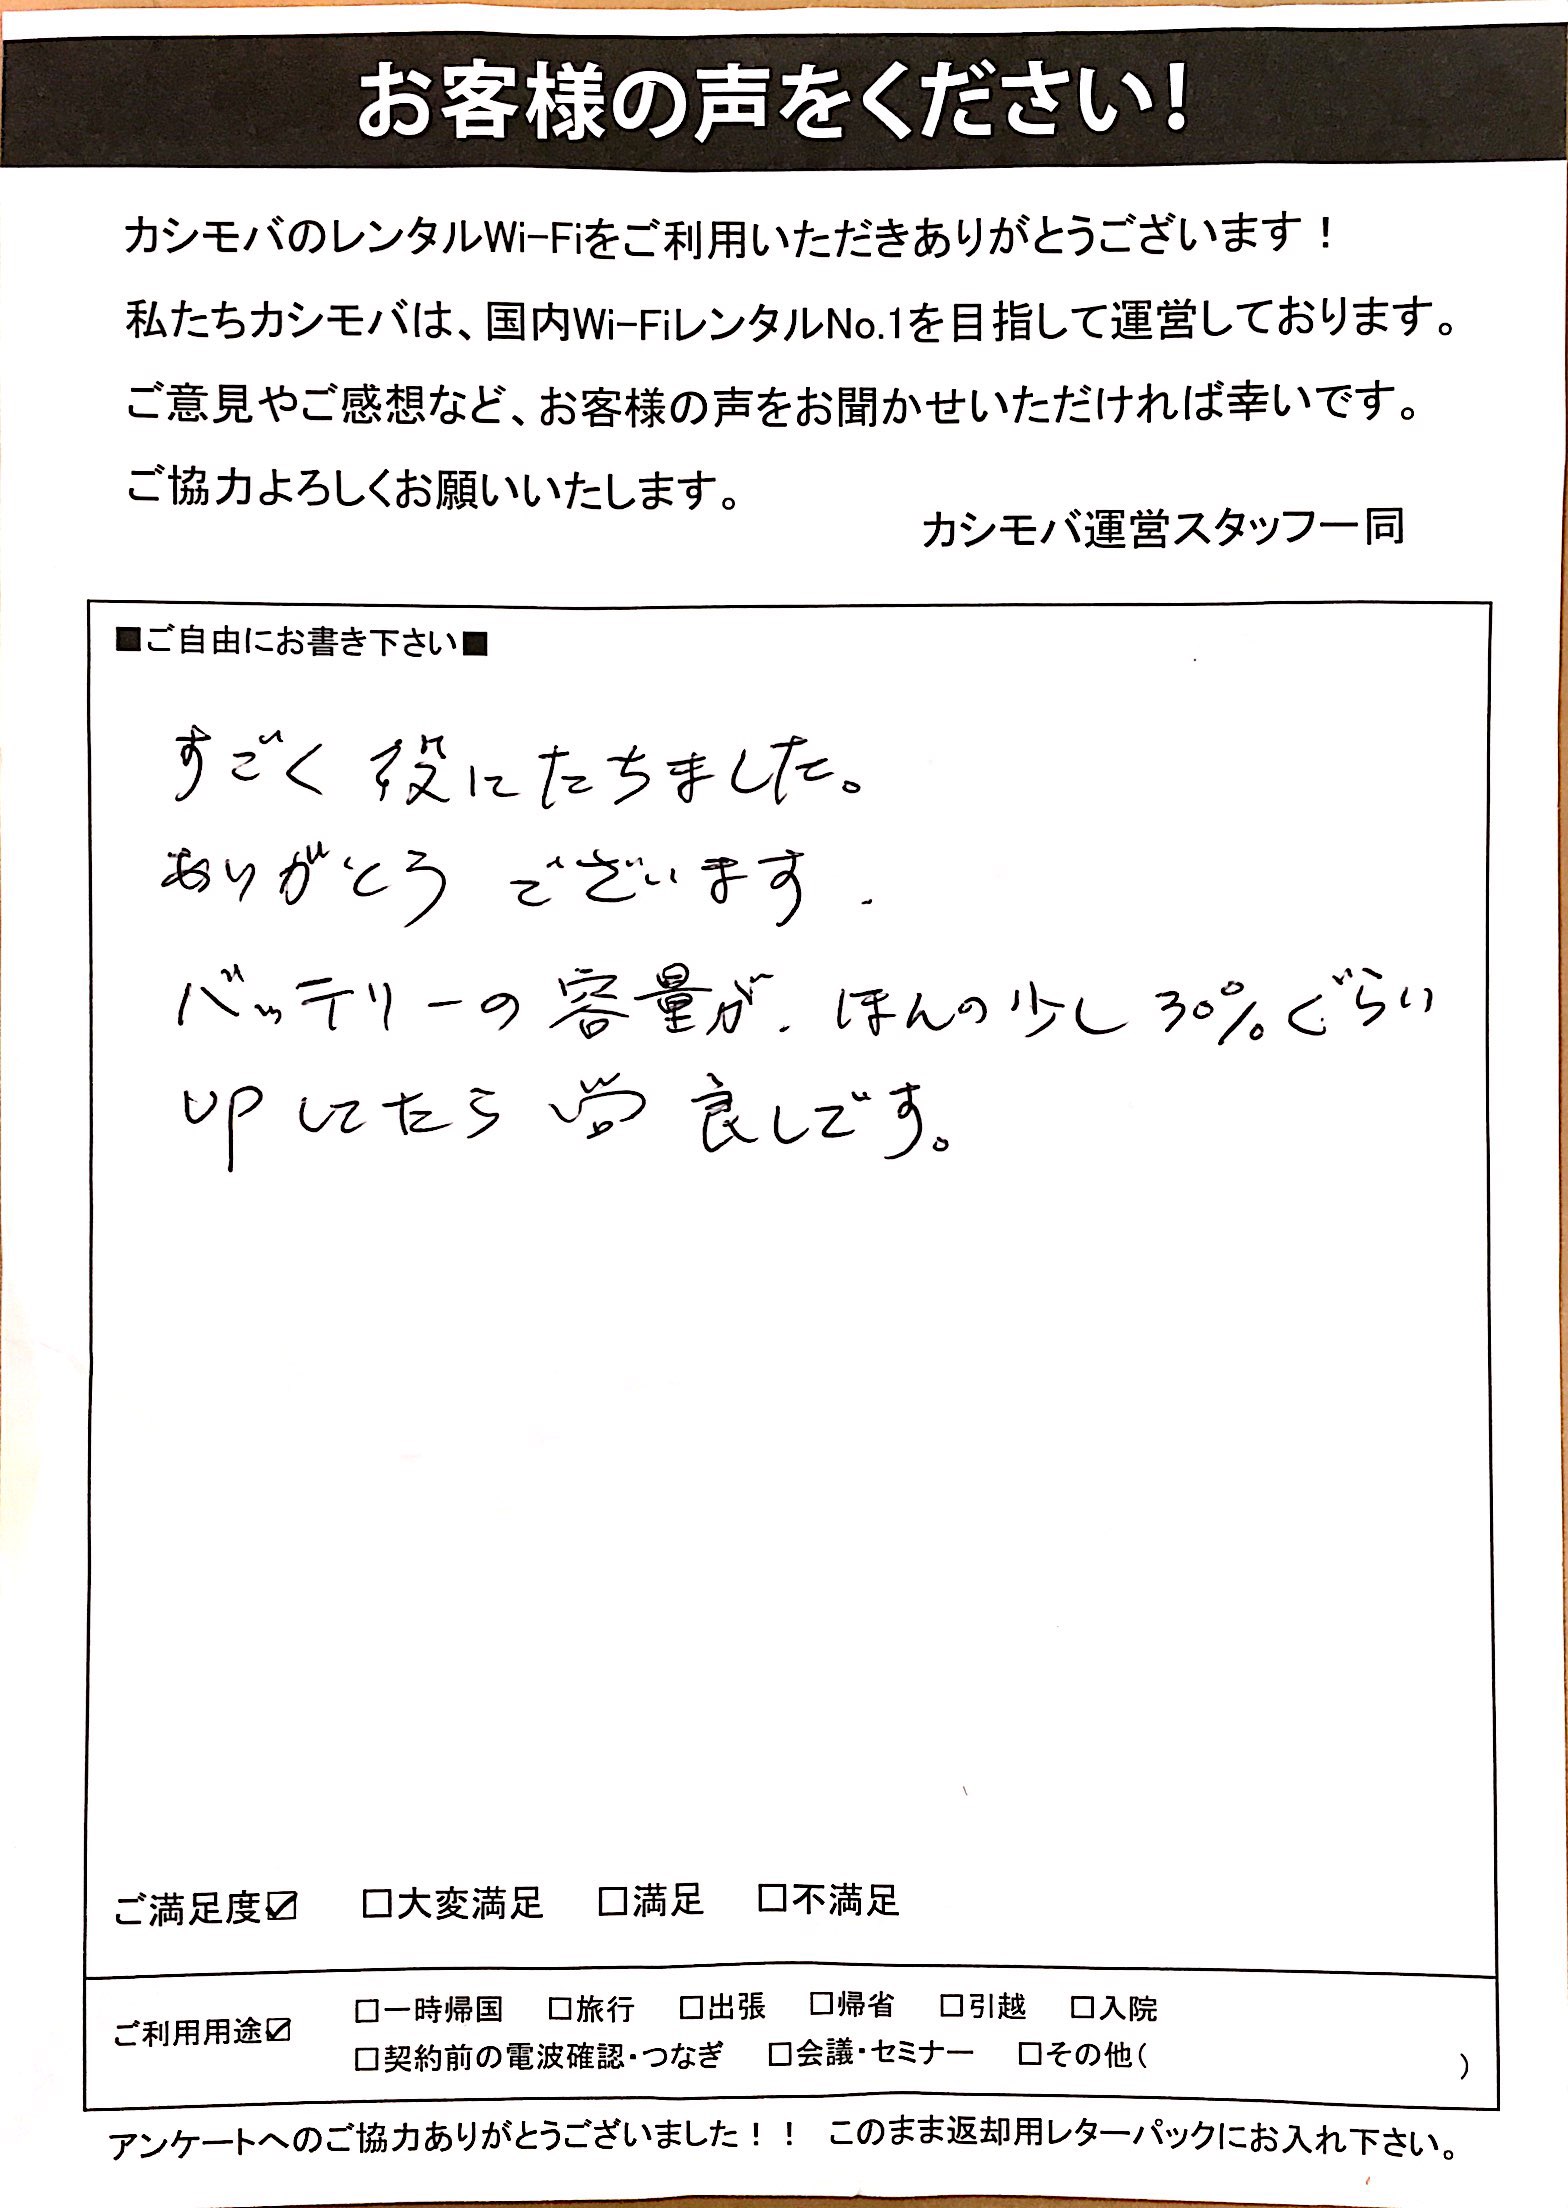 お客様の声をください!
カシモバのレンタルWi-Fiをご利用いただきありがとうございます！
私たちカシモバは、国内Wi-FiレンタルNo.1を目指して運営しております。
ご意見やご感想など、お客様の声をお聞かせいただければ幸いです。
ご協力よろしくお願いいたします。
カシモバ運営スタッフ一同
■ご自由にお書き下さい■
すごく役にたちました。
ありがとうございます.
バッテリーの容量が、ほんの少し30%ぐらい
UPしてたら尚良しです。
ご満足度☑ □大変満足 □満足 □不満足
ご利用用途☑ □一時帰国 □旅行 □出張 □帰省 □引越 □入院
□契約前の電波確認・つなぎ □会議・セミナー □その他( )
アンケートへのご協力ありがとうございました！！ このまま返却用レターパックにお入れ下さい。